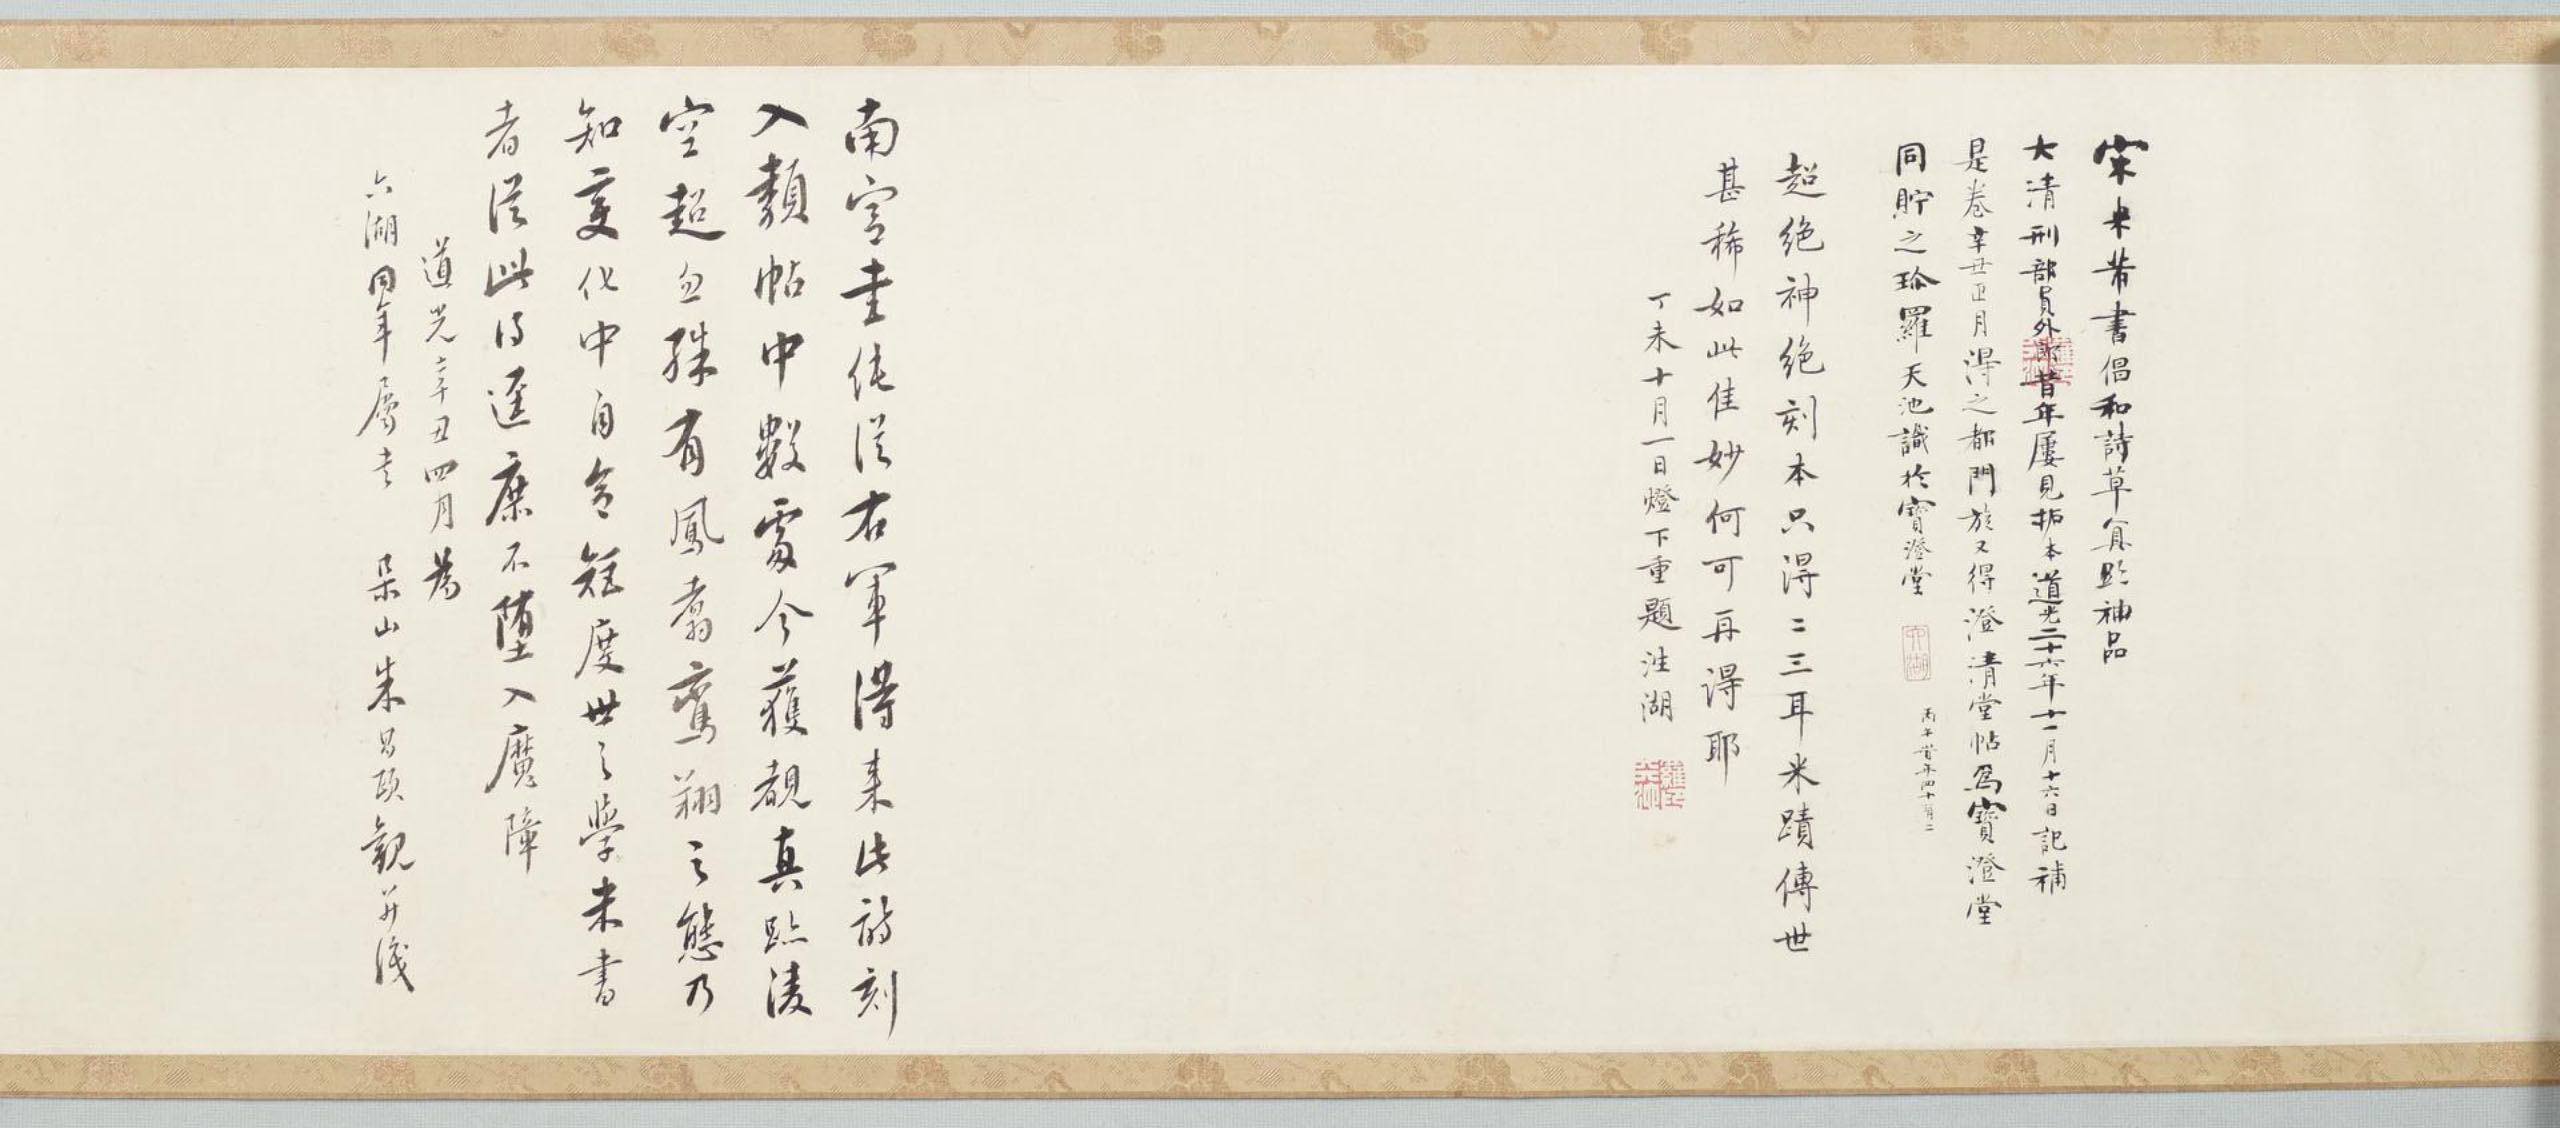 宋米芾書倡和詩草真跡神品
大清刑部員外郎昔年屢見拓本道光二十六年十一月十六日記補
是卷辛丑正月得之都門旋又得澄清堂帖為寶澄堂
同貯之珍羅天池識於寶澄堂
超絕神絕刻本只得二三耳米蹟傳世
甚稀如此佳妙何可再得耶
丁未十月一日燈下重題泩湖
南宮書純從右軍得來此詩刻
入類帖中數處今獲覩真跡淩
空超忽殊有鳳翥鸞翔之態乃
知變化中自含矩度世之學米書
者從此得逕庶不墮入魔障
道光辛丑四月為
六湖同年屬書 朵山朱昌頤觀并識